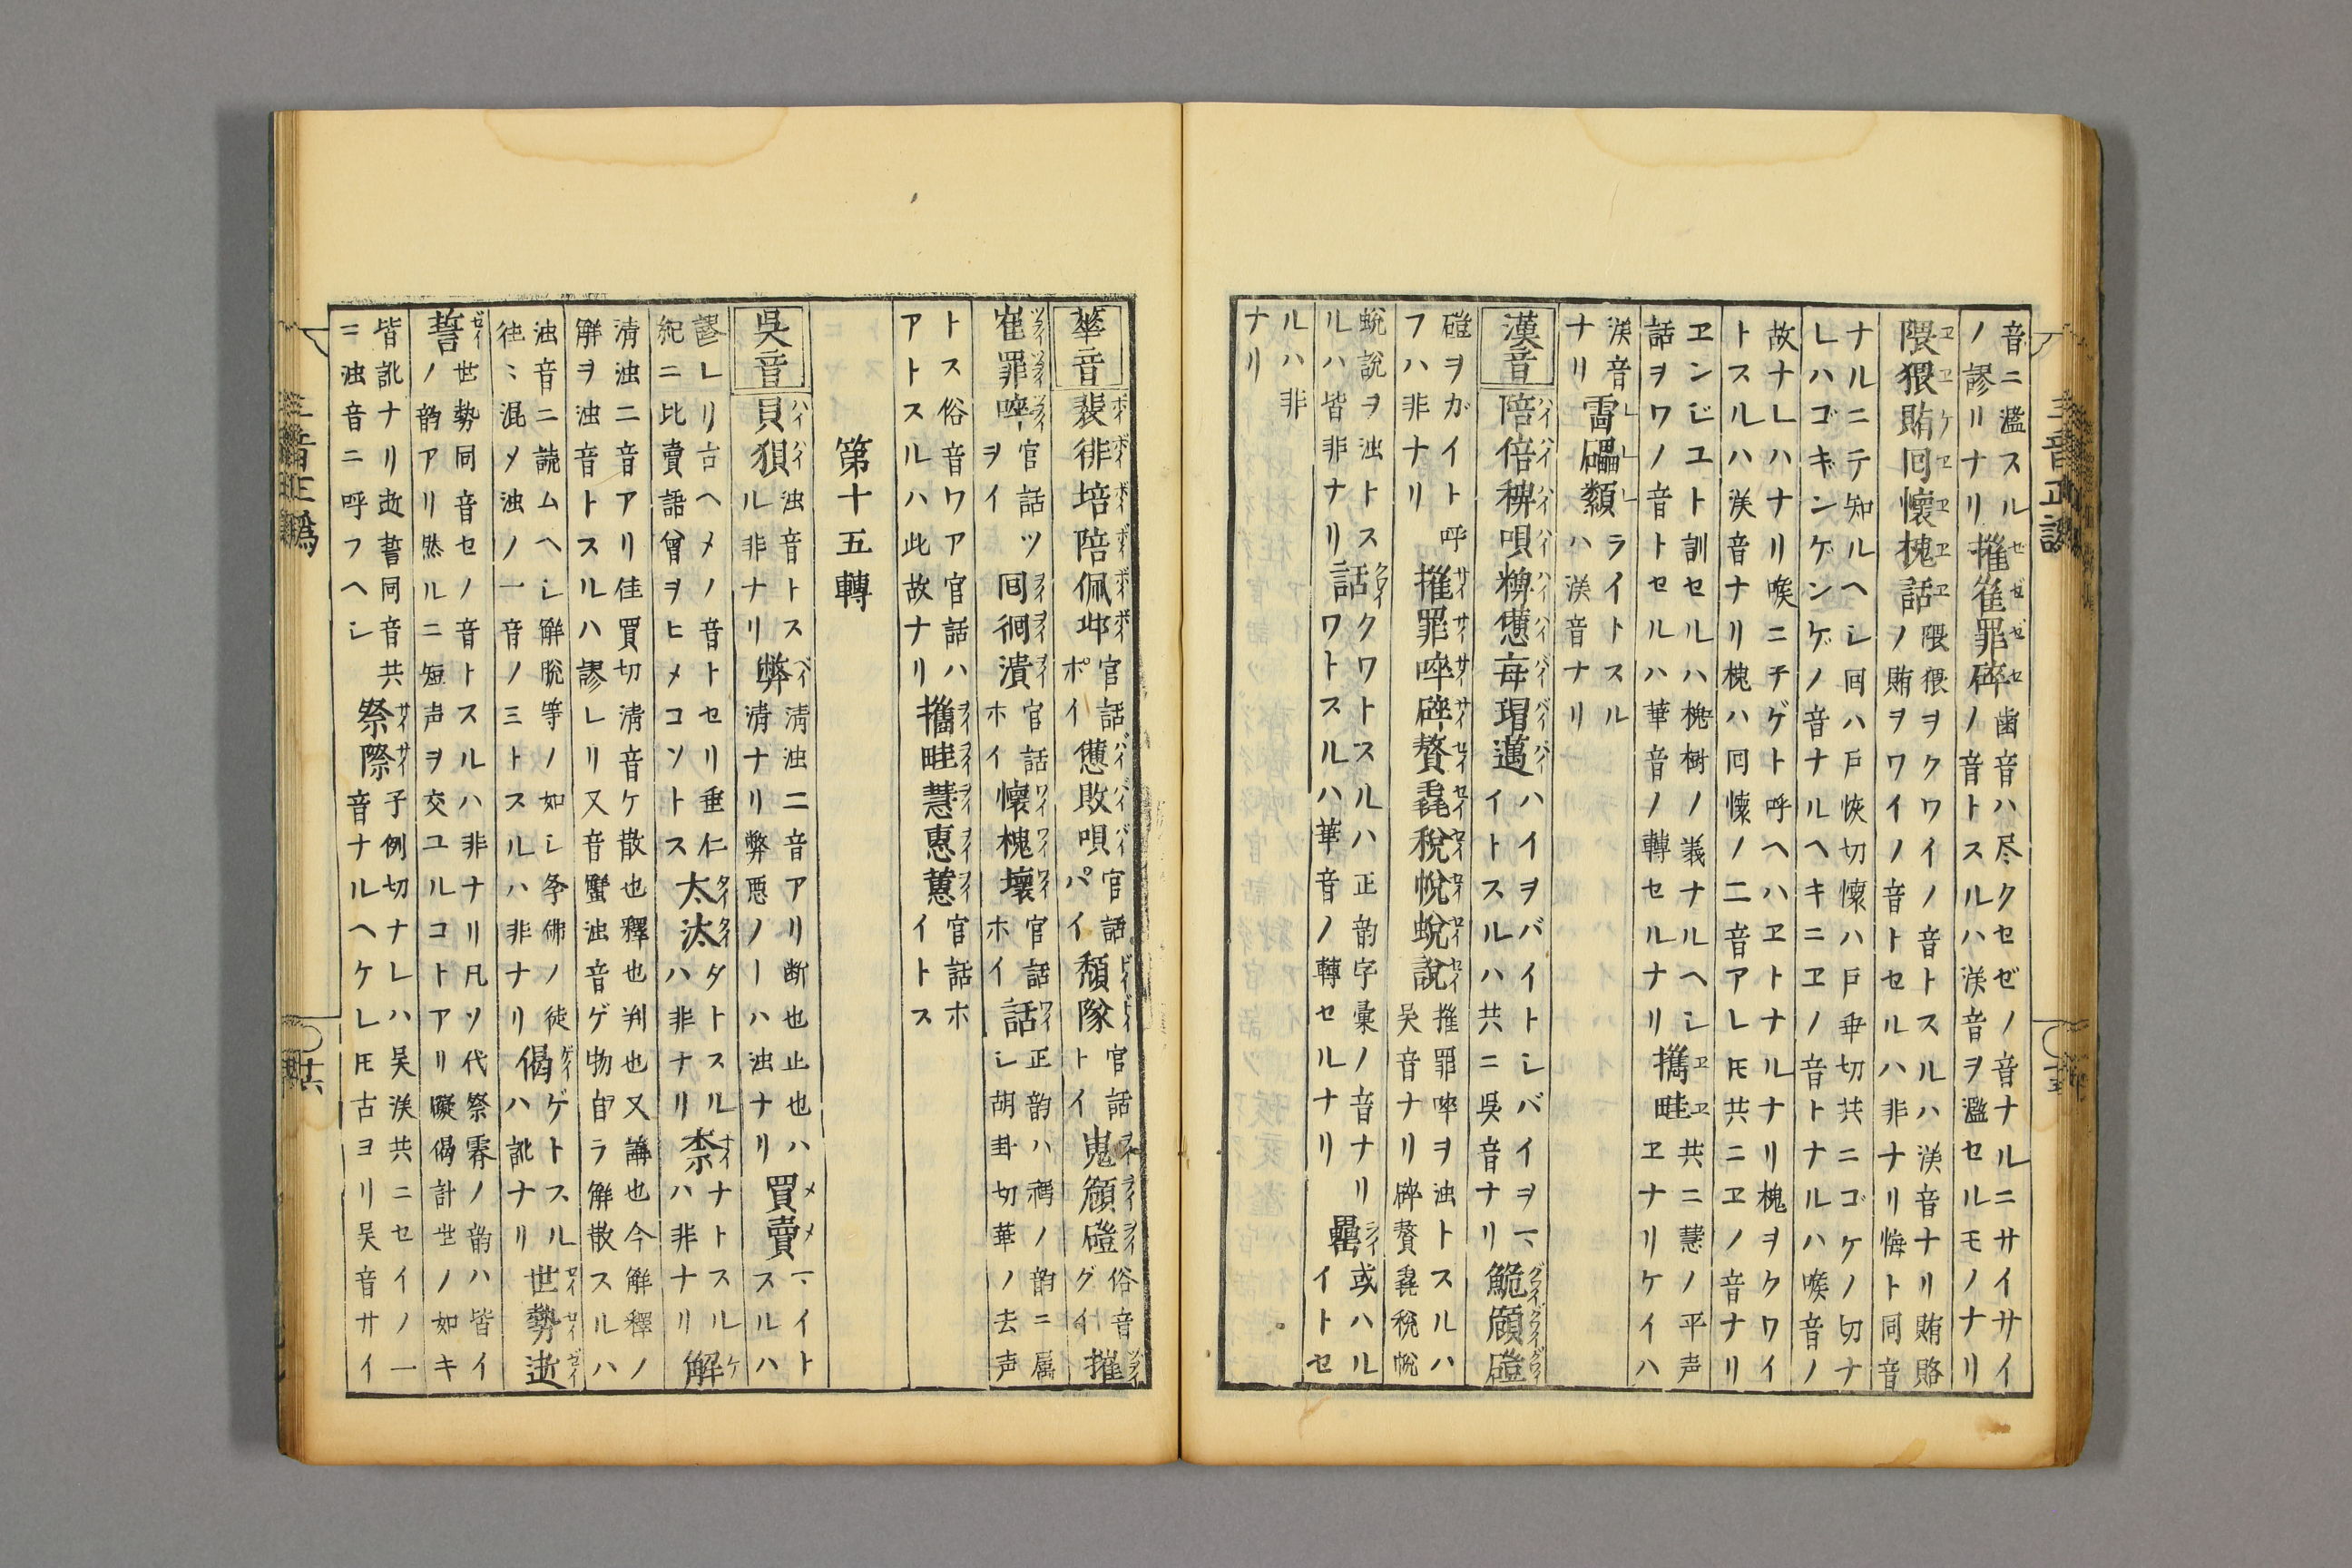 音ニ濫スル
ノ謬リナリ
摧隺罪碎
歯音ハ尽クセゼノ音ナルニサイサイ
ノ音トスルハ漢音ヲ濫セルモノナリ
隈猥賄回懷槐話
隈猥ヲクワイノ音トスルハ漢音ナリ賄賂
ノ賄ヲワイノ音トセルハ非ナリ悔ト同音
ナルニテ知ルヘシ回ハ戸恢切懷ハ戸乖切共ニゴケノ切ナ
レハゴギンゲンゲノ音ナルヘキニヱノ音トナルハ喉音ノ
故ナレハナリ喉ニテゲト呼ヘハヱトナルナリ槐ヲクワイ
トスルハ漢音ナリ槐ハ回懷ノ二音アレ𪜈共ニヱノ音ナリ
ヱンジユト訓セルハ槐樹ノ義ナルヘシ
話ヲワノ音トセルハ華音ノ轉セルナリ
攜畦
共ニ慧ノ平声
ヱナリケイハ
漢音
ナリ
雷礧纇
ライトスル
ハ漢音ナリ
漢音
陪倍稗唄粺憊每瑁邁
ハイヲバイトシバイヲマ
イトスルハ共ニ吳音ナリ
鮠頠磑
磑ヲガイト呼
フハ非ナリ
摧罪啐碎贅毳稅帨蛻說
摧罪啐ヲ浊トスルハ
吳音ナリ碎贅毳稅帨
蛻說ヲ浊トス
ルハ皆非ナリ
話
クワトスルハ正韵字彙ノ音ナリ
ワトスルハ華音ノ轉セルナリ
罍
或ハル
イトセ
ルハ非
ナリ
三音正譌
華音
裴徘培陪佩邶
官話
ポイ
憊敗唄
官話
パイ
頽隊
官話
トイ
嵬頠磑
俗音
グイ
摧
崔罪啐
官話ツ
ヲイ
回徊潰
官話
ホイ
懷槐壞
官話
ホイ
話
正韵ハ禡ノ韵ニ属
シ胡卦切華ノ去声
トス俗音ワア官話ハ
アトスルハ此故ナリ
攜畦慧惠蕙
官話ホ
イトス
第十五轉
吳音
貝狽
浊音トス
ル非ナリ
弊
淸浊二音アリ断也止也ハ
淸ナリ弊悪ノ一ハ浊ナリ
買賣
マイト
スルハ
謬レリ古ヘメノ音トセリ垂仁
紀ニ比賣語曾ヲヒメコソトス
太汰
タトスル
ハ非ナリ
柰
ナトスル
ハ非ナリ
解
淸浊二音アリ佳買切淸音ケ散也釋也判也又講也今解釋ノ
解ヲ浊音トスルハ謬レリ又音蟹浊音ゲ物自ラ解散スルハ
浊音ニ読ムヘシ解脫等ノ如シ争佛ノ徒
往〻混メ浊ノ一音ノミトスルハ非ナリ
偈
ゲトスル
ハ訛ナリ
世勢逝
誓
世勢同音セノ音トスルハ非ナリ凡ソ代祭霽ノ韵ハ皆イ
ノ韵アリ然ルニ短声ヲ交ユルコトアリ礙偈計世ノ如キ
皆訛ナリ逝誓同音共
ニ浊音ニ呼フヘシ
祭際
子例切ナレハ吳漢共ニセイノ一
音ナルヘケレ𪜈古ヨリ吳音サイ
三音正譌
十六